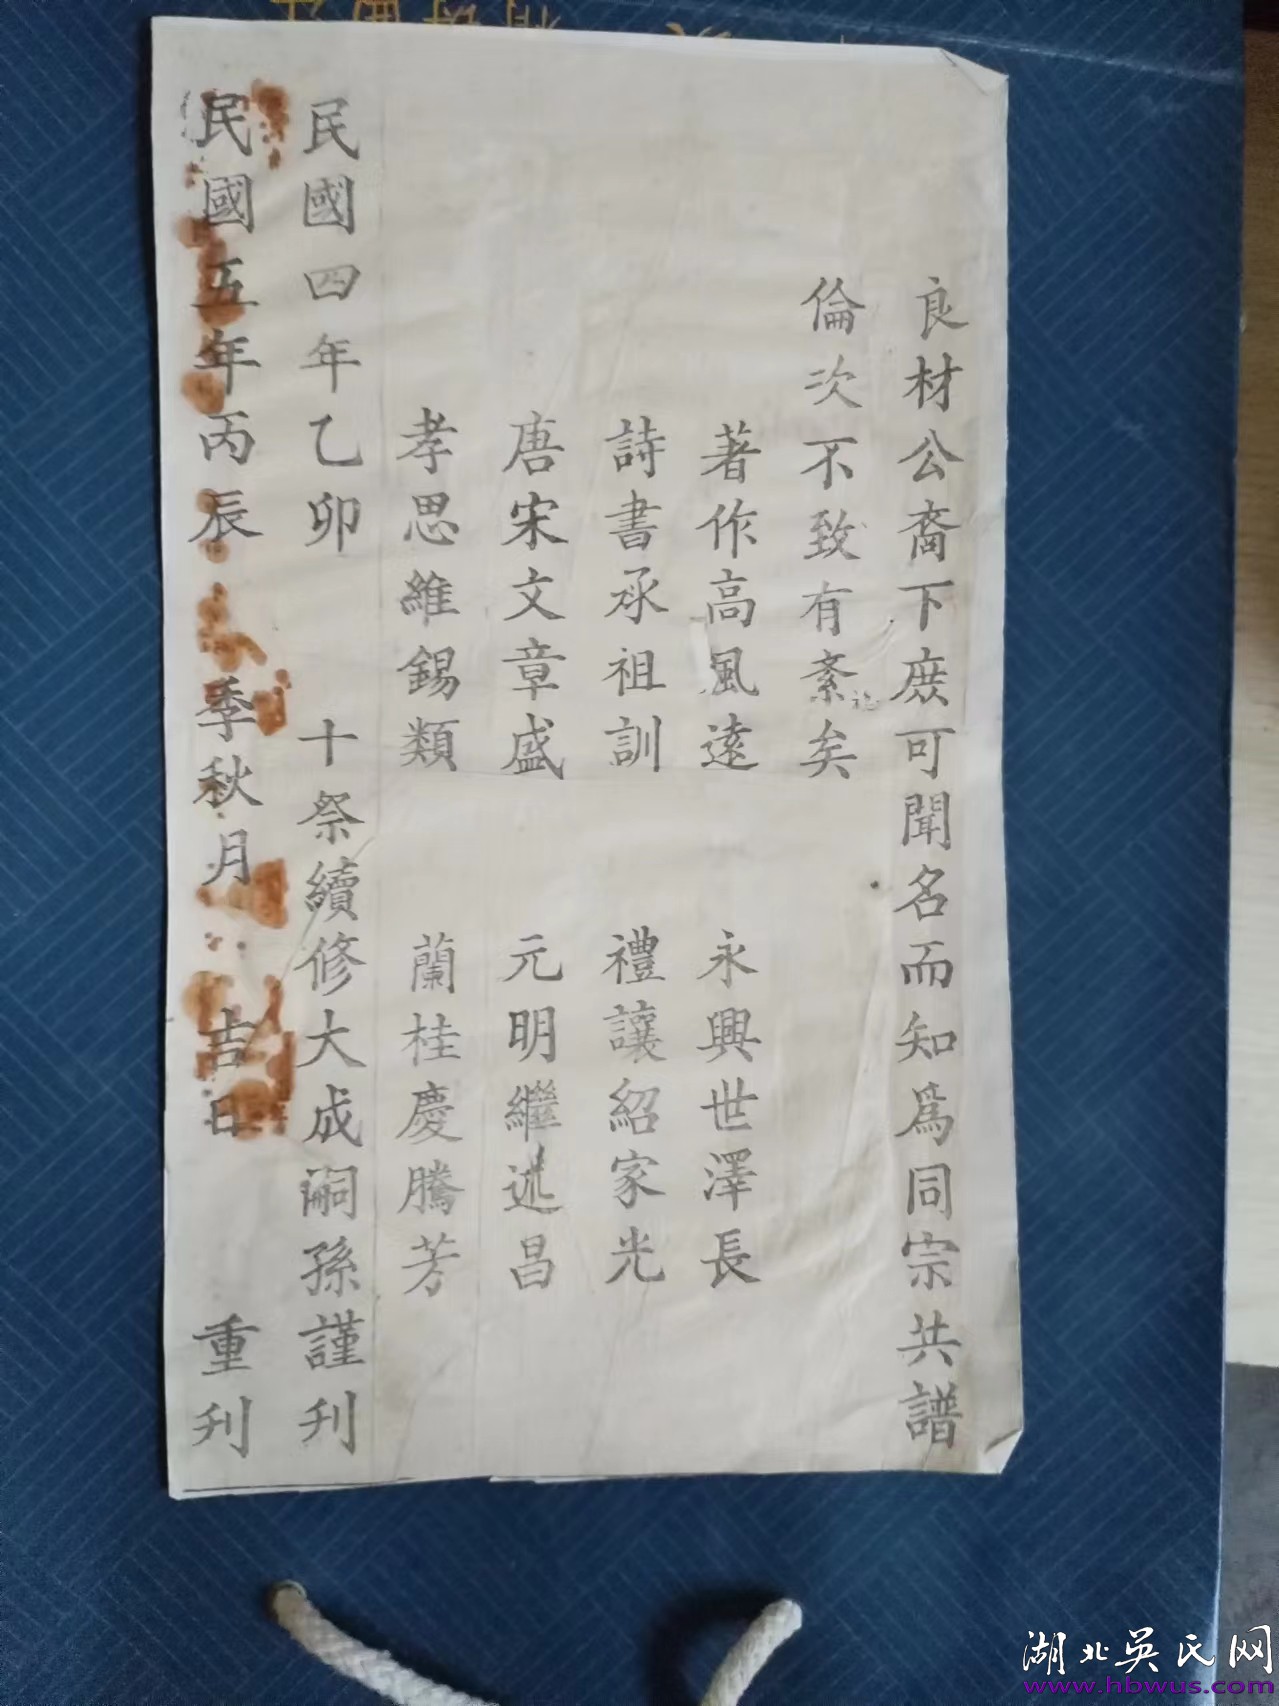 良材公裔下庶可聞名而知為同宗共譜
倫次不致有紊矣
著作高風遠 永興世澤長
詩書承祖訓 禮讓紹家光
唐宋文章盛 元明繼述昌
孝思維錫類 蘭桂慶騰芳
民國四年乙卯 十祭續修大成嗣孫謹刋
民國五年丙辰 季秋月 吉日 重刋
湖北吳氏网
www.hbwus.com